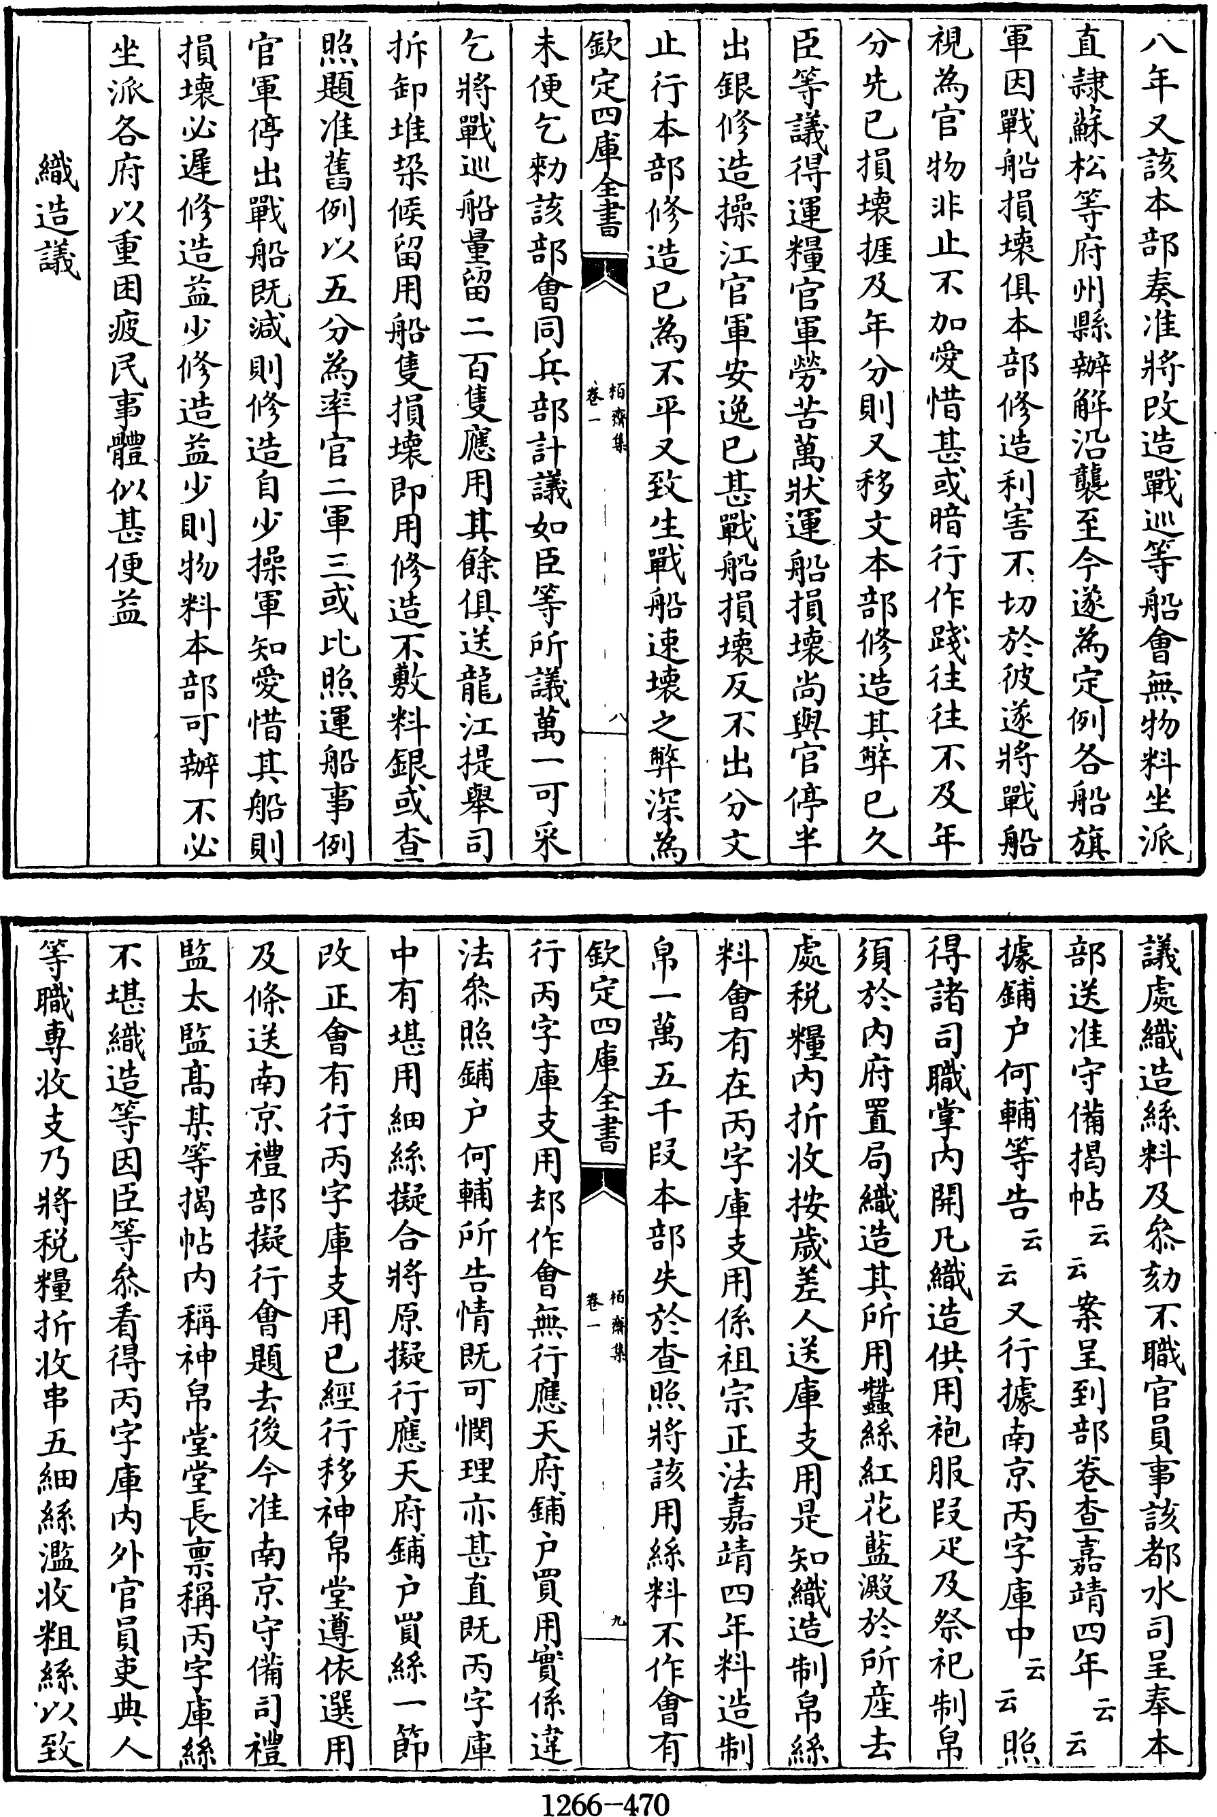 八年又該本部奏准將改造戰巡等船會無物料坐派
直隷蘇松等府州縣辦解沿襲至今遂為定例各船旗
軍因戰船損壞俱本部修造利害不切於彼遂將戰船
視為官物非止不加愛惜甚或暗行作踐往往不及年
分先已損壞捱及年分則又移文本部修造其弊已久
臣等議得運糧官軍勞苦萬狀運船損壞尚與官停半
出銀修造操江官軍安逸已甚戰船損壞反不出分文
止行本部修造已為不平又致生戰船速壞之弊深為
欽定四庫全書
栢齋集
卷一
八
未便乞勑該部會同兵部計議如臣等所議萬一可采
乞將戰巡船量留二百隻應用其餘俱送龍江提舉司
拆卸堆垜候留用船隻損壞即用修造不敷料銀或查
照題准舊例以五分為率官二軍三或比照運船事例
官軍停出戰船既減則修造自少操軍知愛惜其船則
損壞必遲修造益少修造益少則物料本部可辦不必
坐派各府以重困疲民事體似甚便益
織造議
議處織造絲料及叅劾不職官員事該都水司呈奉本
部送准守備揭帖云云案呈到部卷查嘉靖四年云云
據鋪户何輔等告云云又行據南京丙字庫中云云照
得諸司職掌内開凡織造供用袍服段疋及祭祀制帛
須於内府置局織造其所用蠶絲紅花藍澱於所産去
處税糧内折收按歲差人送庫支用是知織造制帛絲
料會有在丙字庫支用係祖宗正法嘉靖四年料造制
帛一萬五千段本部失於查照將該用絲料不作會有
欽定四庫全書
栢齋集
卷一
九
行丙字庫支用却作會無行應天府鋪户買用實係違
法叅照鋪户何輔所告情既可憫理亦甚直既丙字庫
中有堪用細絲擬合將原擬行應天府鋪户買絲一節
改正會有行丙字庫支用已經行移神帛堂遵依選用
及條送南京禮部擬行會題去後今准南京守備司禮
監太監髙某等揭帖内稱神帛堂堂長禀稱丙字庫絲
不堪織造等因臣等叅看得丙字庫内外官員吏典人
等職専收支乃將税糧折收串五細絲濫收粗絲以致
1266-470